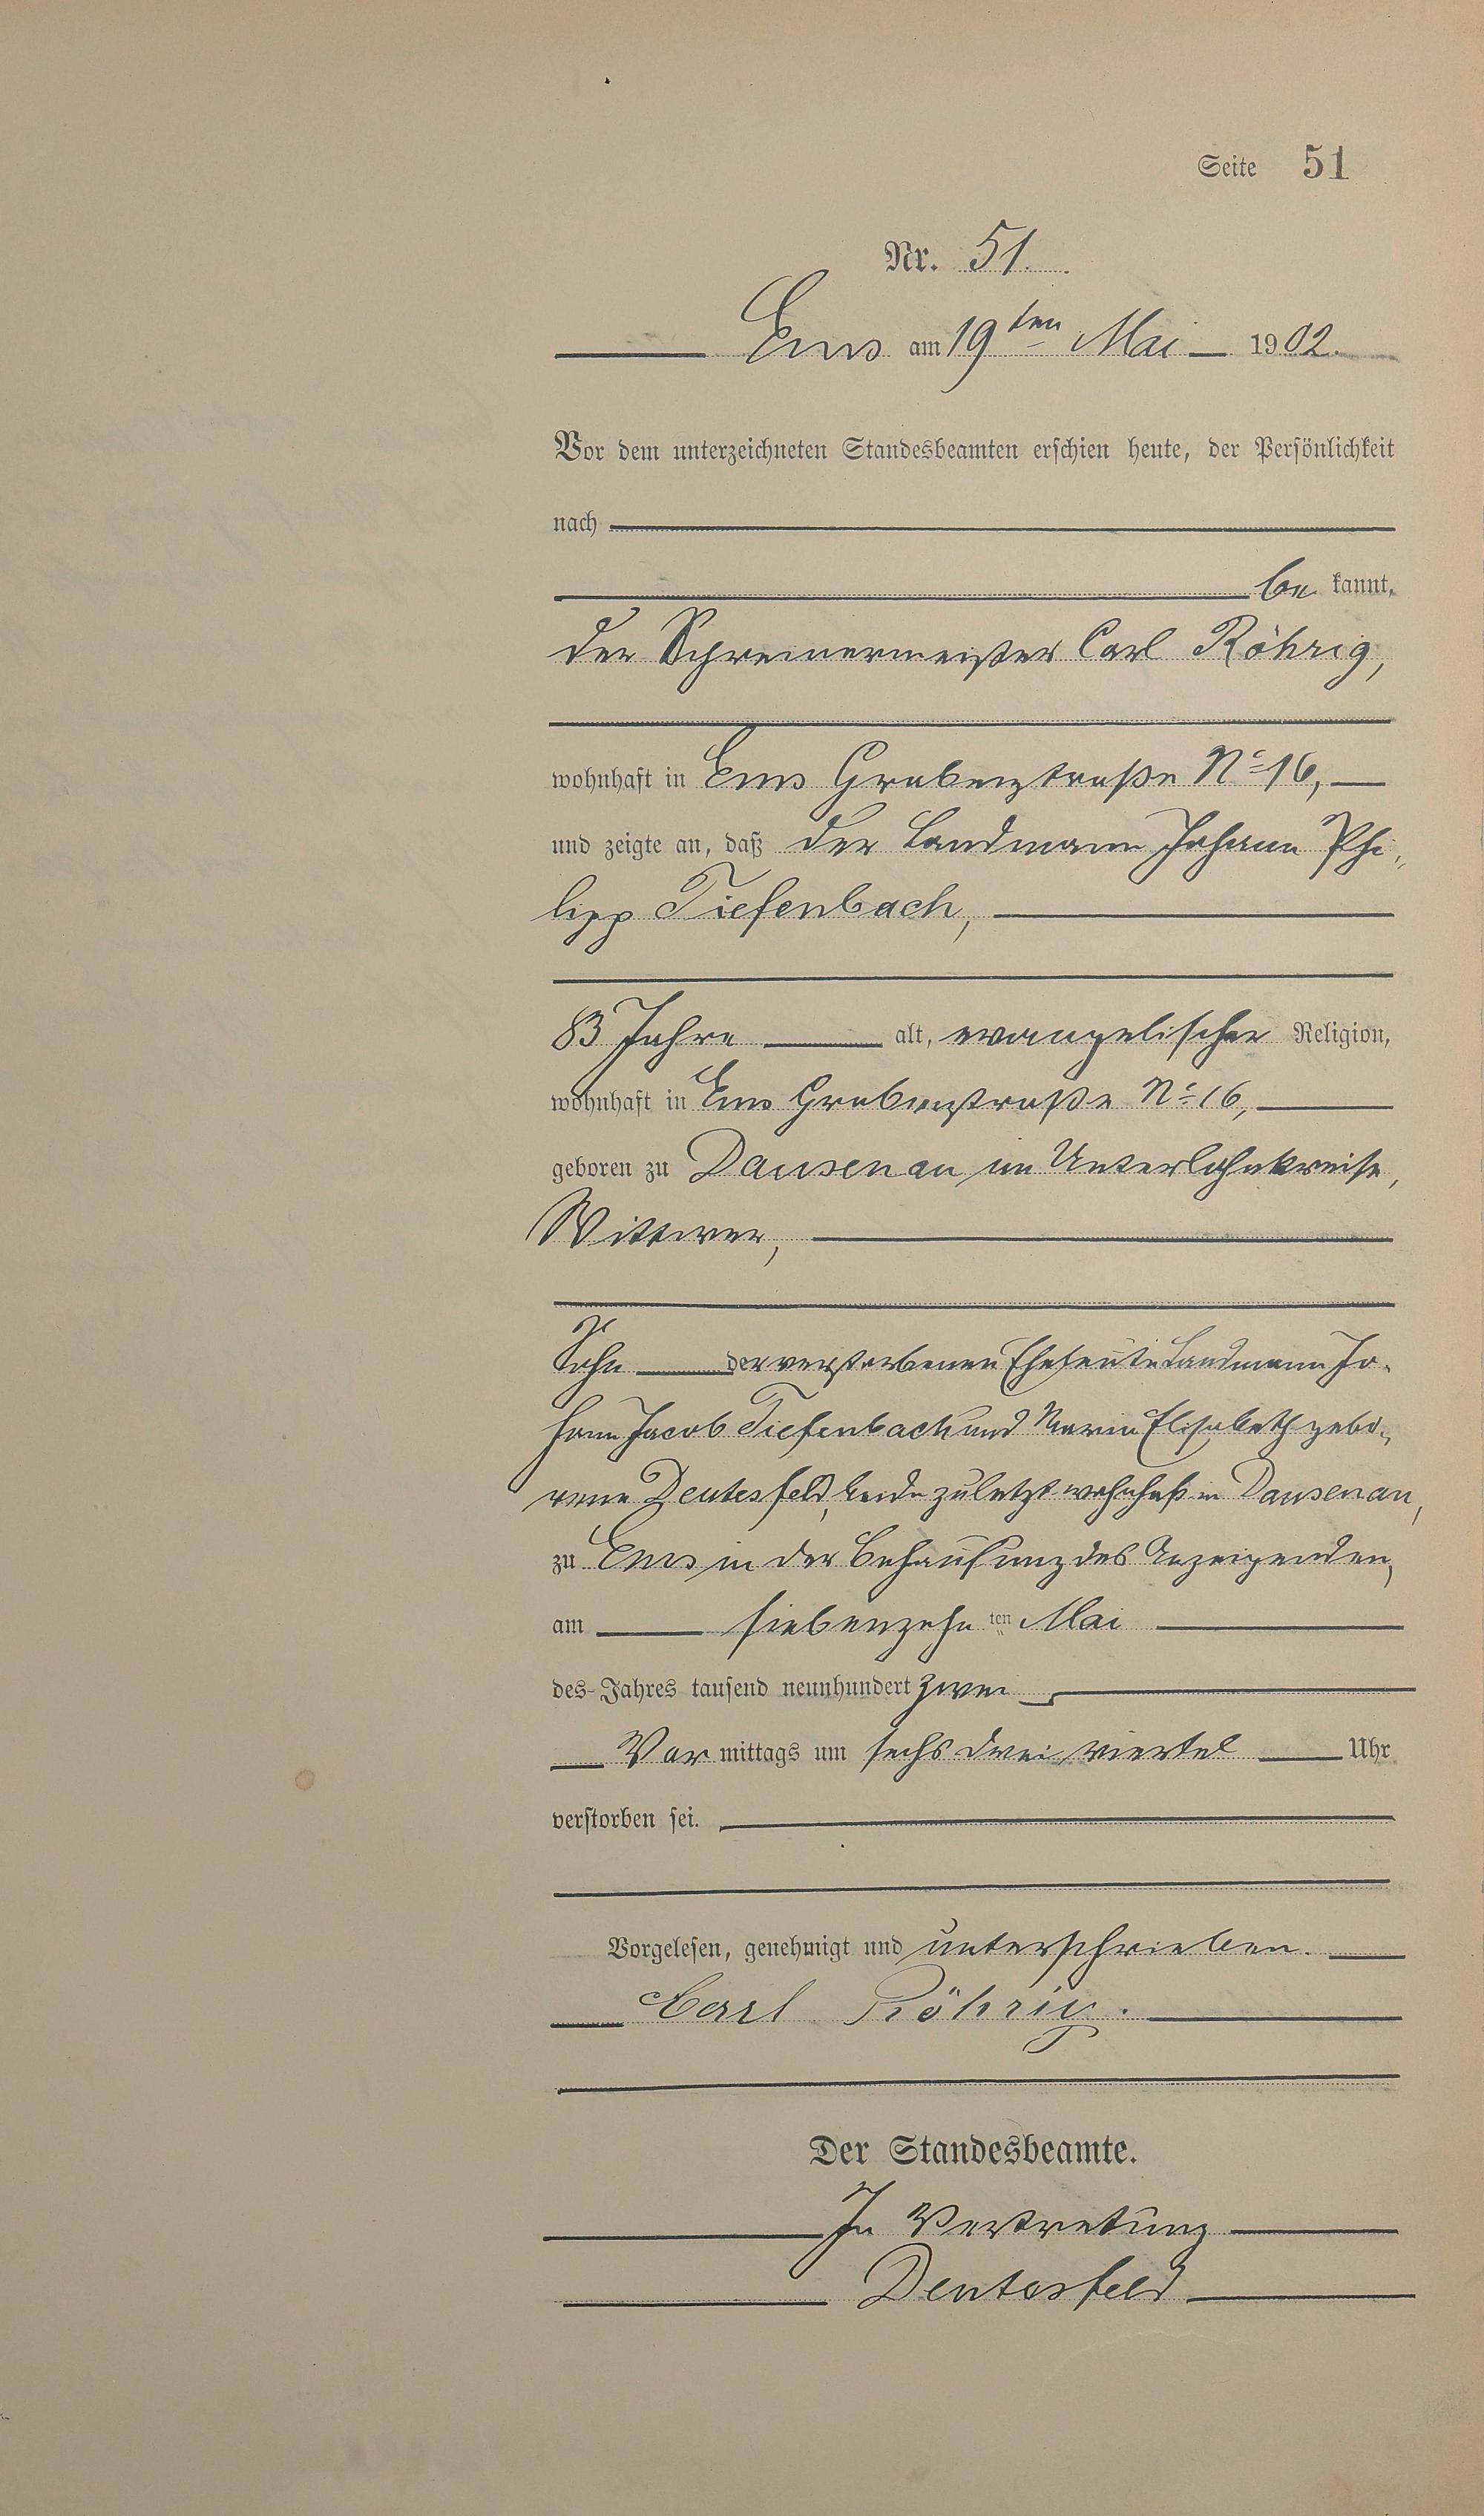 Seite 51
Nr. 51.
Ems am 19ten Mai 1902.
Vor dem unterzeichneten Standesbeamten erschien heute, der Persönlichkeit
nach
be kannt,
der Schreinermeister Carl Röhrig,
wohnhaft in Ems Grabenstraße No 16,
und zeigte an, daß der Landmann Johann Phi-
lipp Tiefenbach,
83 Jahre alt, evangelischer Religion,
wohnhaft in Ems Grabenstraße No 16,
geboren zu Dausenau im Unterlahnkreise,
Wittwer,
Sohn der verstorbenen Eheleute Landmann Jo-
hann Jacob Tiefenbach und Maria Elisabeth gebo-
rene Deutesfeld, beide zuletzt wohnhaft in Dausenau,
zu Ems in der Behausung des Anzeigenden,
am siebenzehn ten Mai
des Jahres tausend neunhundert zwei
Vor mittags um sechs drei viertel Uhr
verstorben sei.
Vorgelesen, genehmigt und unterschrieben.
Carl Röhrig.
Der Standesbeamte.
In Vertretung
Deutesfeld